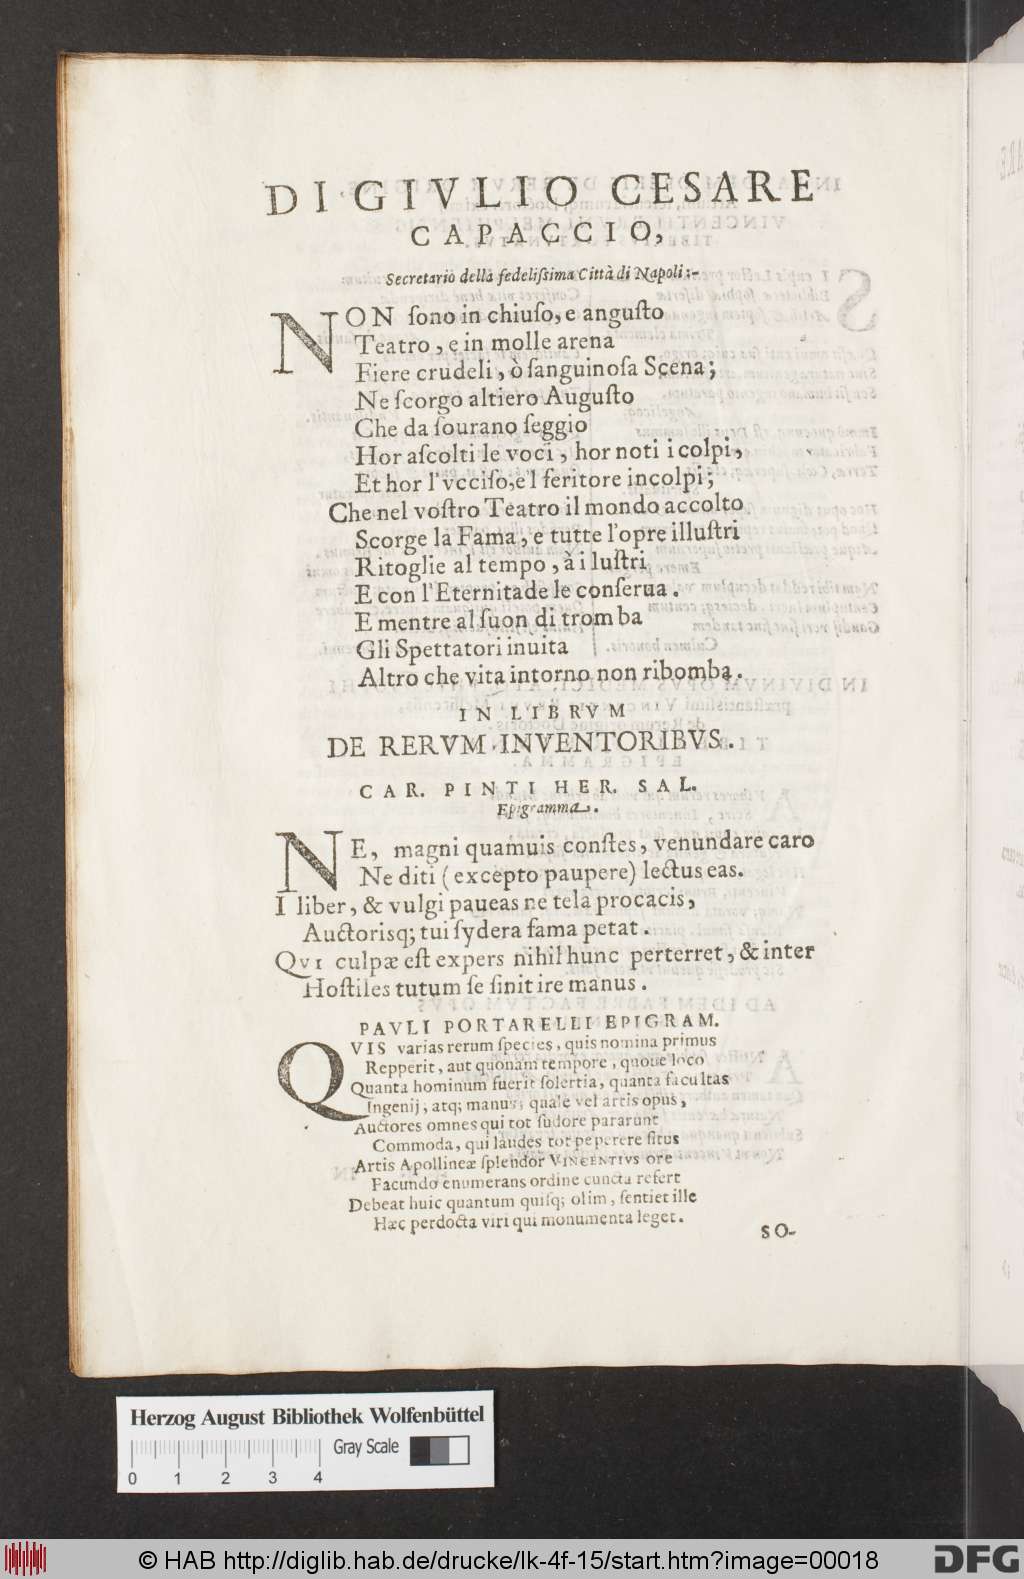 DI GIVLIO CESARE
CAPACCIO,
Secretario della fedelißima Città di Napoli:-
NON ſono in chiuſo, e anguſto
Teatro, e in molle arena
Fiere crudeli, ò ſanguinoſa Scena;
Ne ſcorgo altiero Auguſto
Che da ſourano ſeggio
Hor aſcolti le voci, hor noti i colpi,
Et hor l'vcciſo, e'l feritore incolpi;
Che nel voſtro Teatro il mondo accolto
Scorge la Fama, e tutte l'opre illuſtri
Ritoglie al tempo, à i luſtri
E con l'Eternitade le conſerua.
E mentre al ſuon di tromba
Gli Spettatori inuita
Altro che vita intorno non ribomba.
IN LIBRVM
DE RERVM INVENTORIBVS.
CAR. PINTI HER. SAL.
Epigramma.
NE, magni quamuis conſtes, venundare caro
Ne diti (excepto paupere) lectus eas.
I liber, & vulgi paueas ne tela procacis,
Auctorisq; tui ſydera fama petat.
QVI culpæ eſt expers nihil hunc perterret, & inter
Hoſtiles tutum ſe ſinit ire manus.
PAVLI PORTARELLI EPIGRAM.
QVIS varias rerum ſpecies, quis nomina primus
Repperit, aut quonam tempore, quoue loco
Quanta hominum fuerit ſolertia, quanta facultas
Ingenij, atq; manus; quale vel artis opus,
Auctores omnes qui tot ſudore pararunt
Commoda, qui laudes tot peperere ſitus
Artis Apollineæ ſplendor VINCENTIVS ore
Facundo enumerans ordine cuncta refert
Debeat huic quantum quiſq; olim, ſentiet ille
Hæc perdocta viri qui monumenta leget.
SO-
Herzog August Bibliothek Wolfenbüttel
Gray Scale
0 1 2 3 4
© HAB http://diglib.hab.de/drucke/lk-4f-15/start.htm?image=00018
DFG